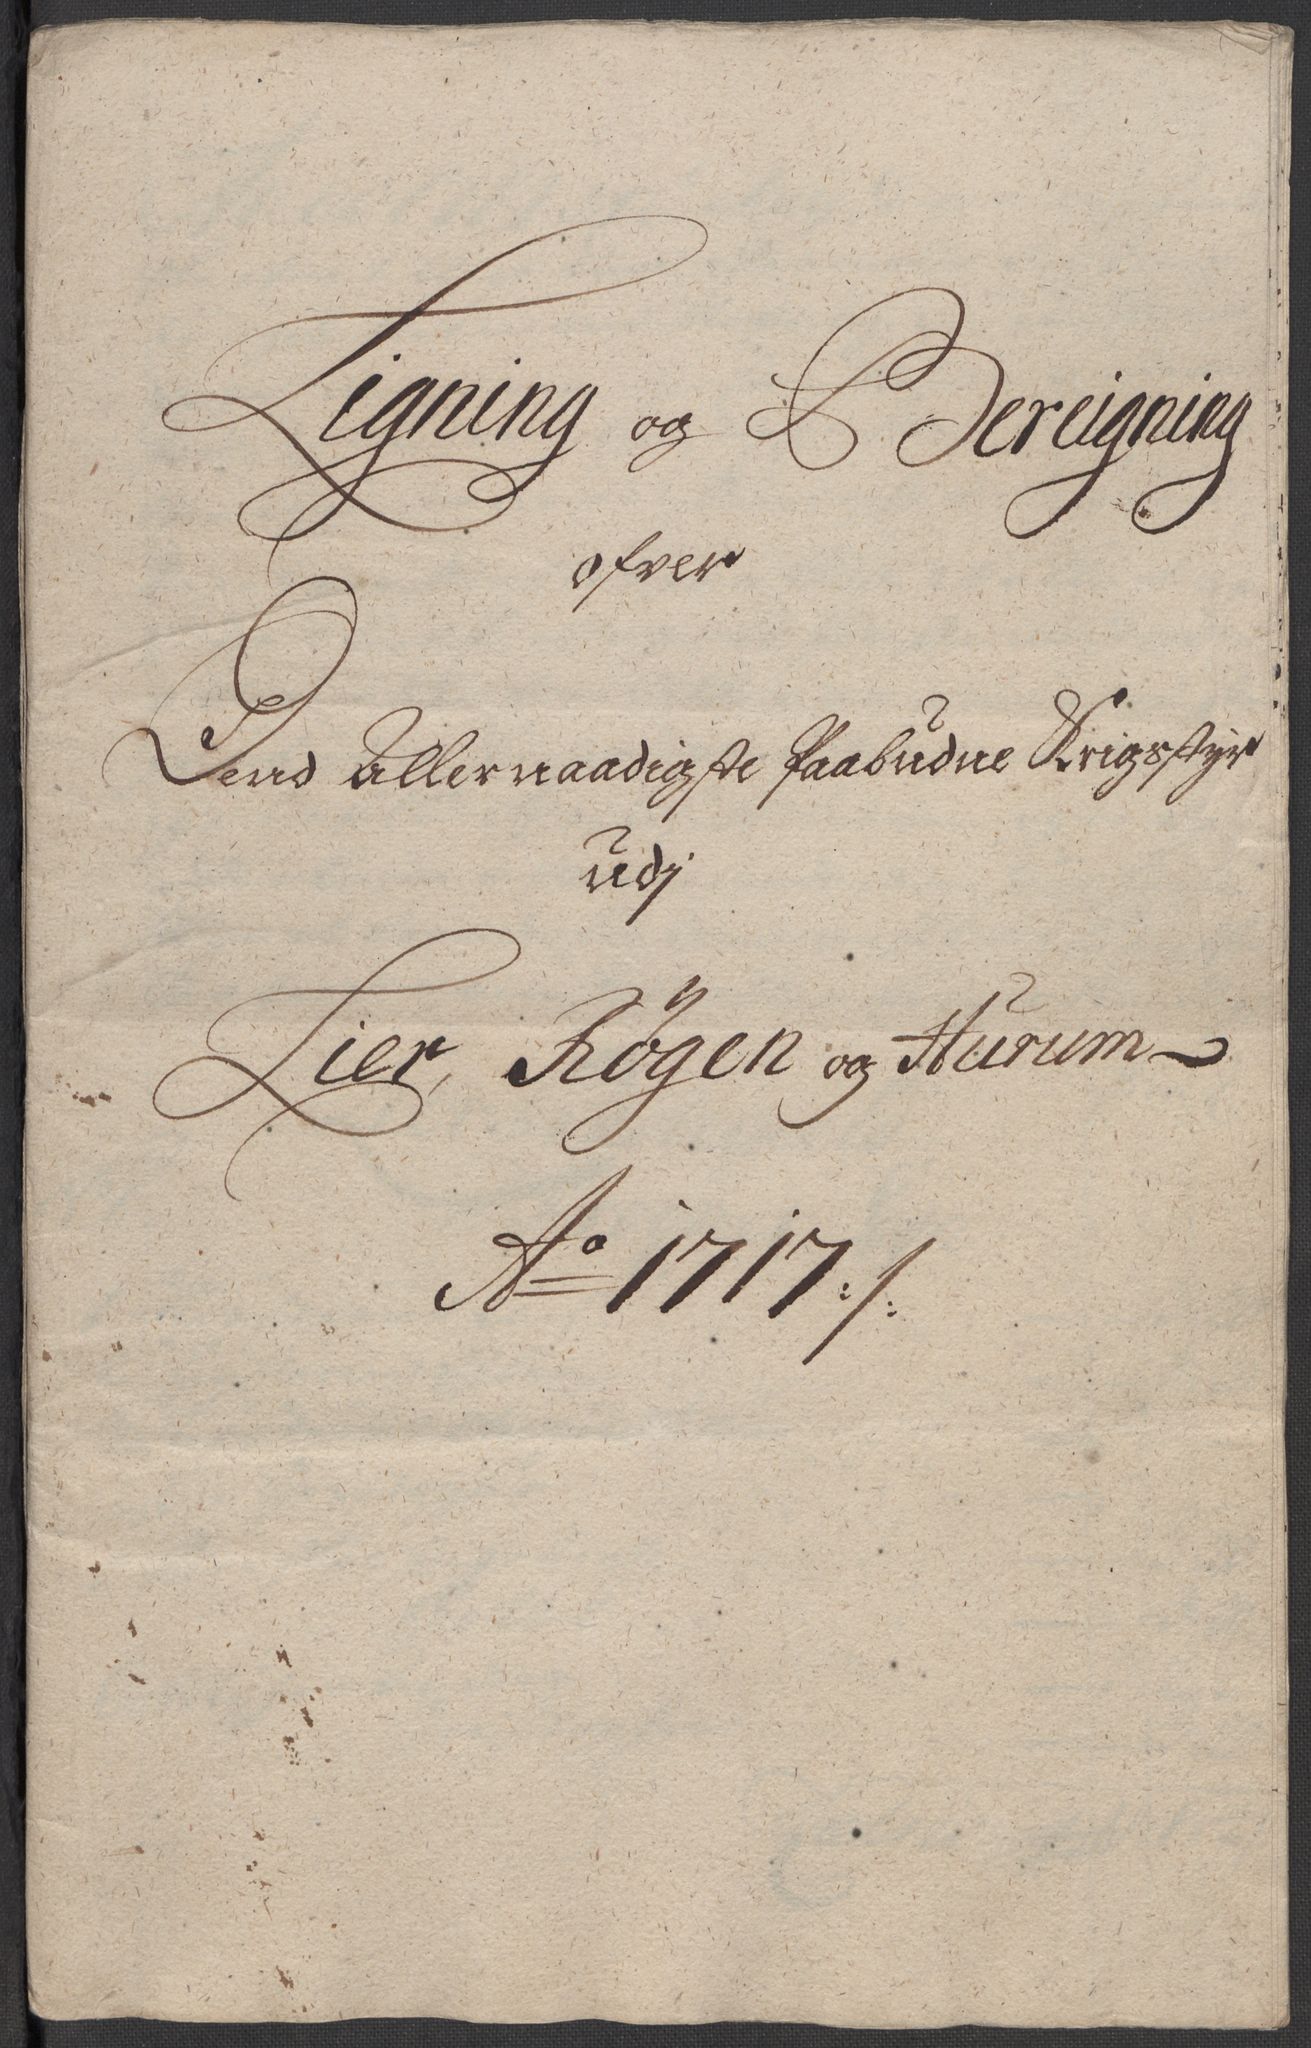 Ligning og Bereigning
ofver
Dend Allernaadigste Paabudne Krigsstyr
udj
Lier, Røgen og Hurum
Ao 1717 :/: